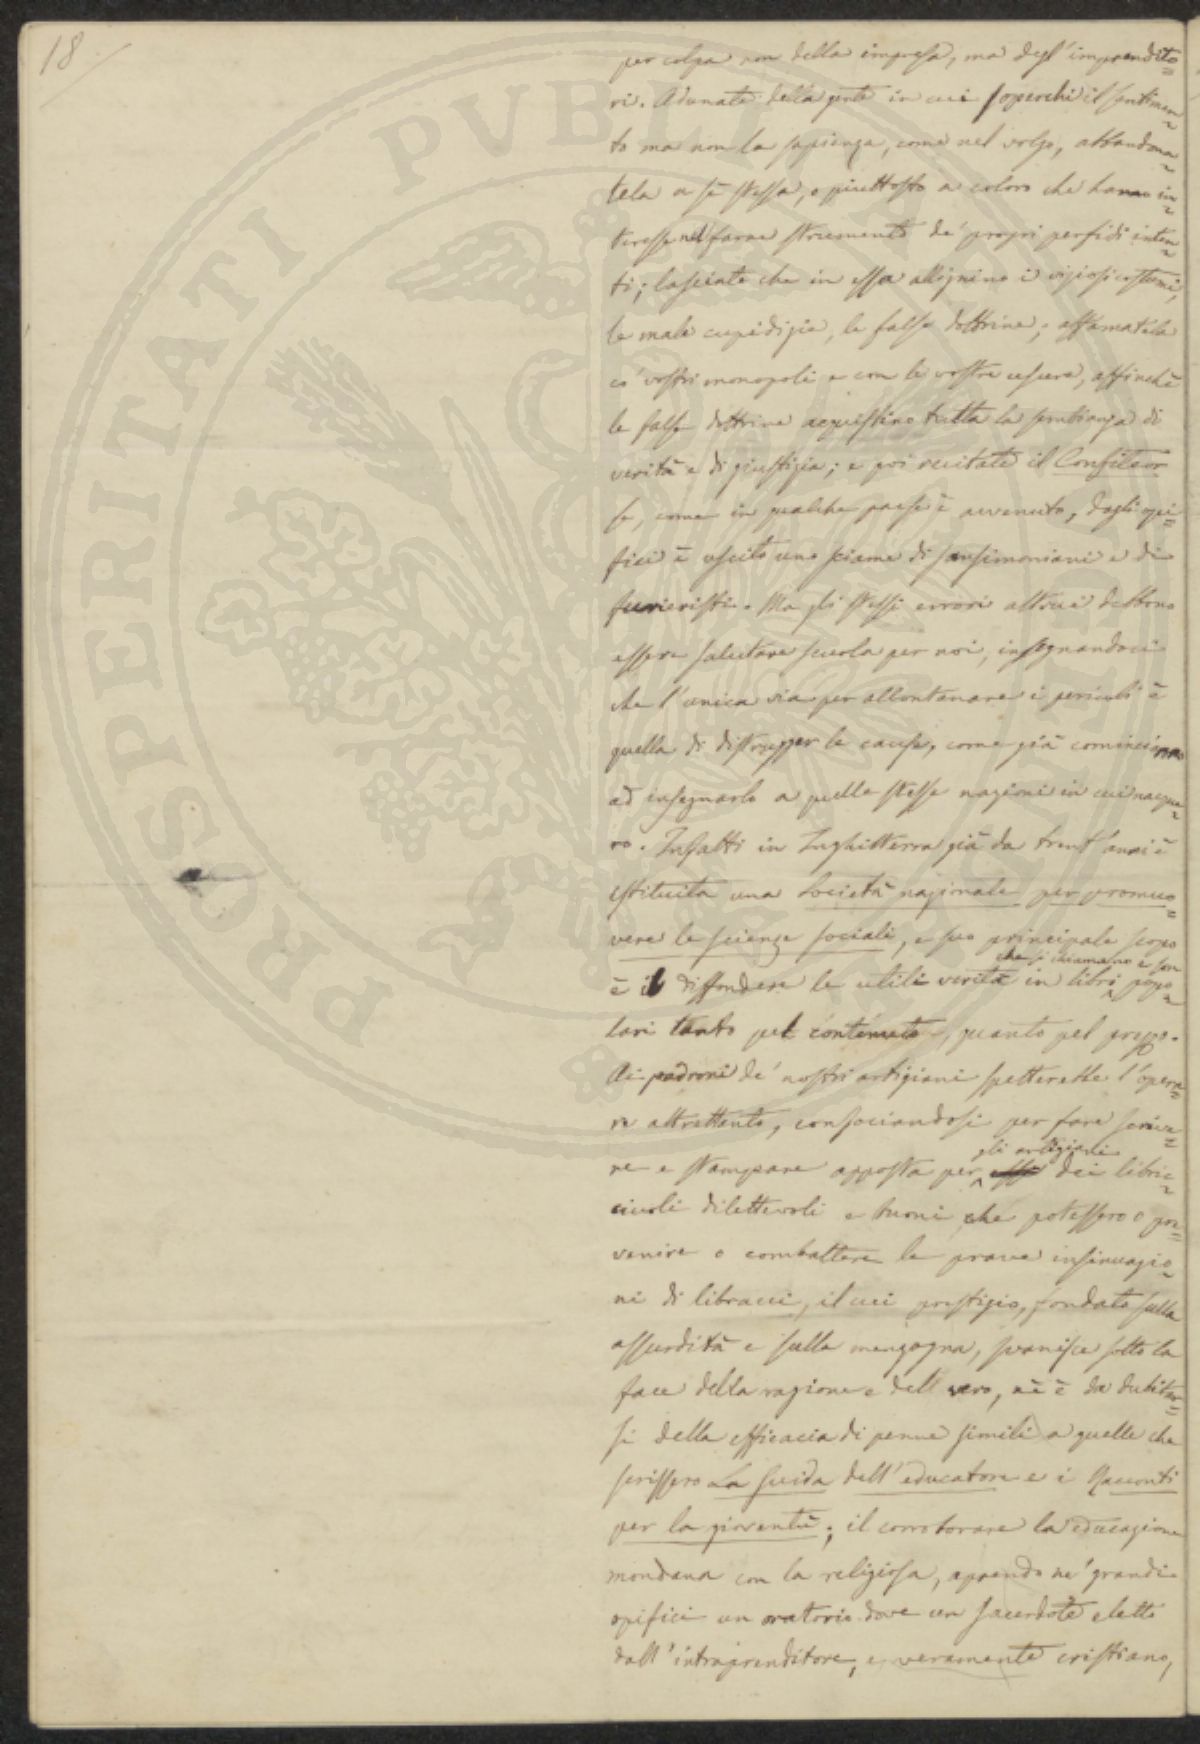 18
per colpa non della impresa, ma degl'imprendito=
ri. Adunate della gente in cui soperchi il sentimen=
to ma non la sapienza, come nel volgo, abbandona=
tela a sè stessa, o piuttosto a coloro che hanno in=
teresse nel farne strumento de' propri perfidi inten=
ti; lasciate che in essa allignino i viziosi costumi,
le male cupidigie, le false dottrine; affamatela
co' vostri monopoli e con le vostre usure, affinchè
le false dottrine acquistino tutta la sembianza di
verità e di giustizia; e poi recitate il Confiteor
se, come in qualche paese è avvenuto, dagli opi=
fici è uscito uno sciame di sansimoniani e di
furieristi. Ma gli stessi errori altrui debbono
essere salutare scuola per noi, insegnandoci
che l'unica via per allontanare i pericoli è
quella di distrugger le cause, come già cominciarono
ad insegnarlo a quelle stesse nazioni in cui nacque=
ro. Infatti in Inghilterra già da trent'anni è
istituita una Società nazionale per promuo=
vere le scienze sociali, e suo principale scopo
è il diffondere le utili verità in libri che si chiamano e son popo=
lari tanto pel contenuto, quanto pel prezzo.
Ai padroni de' nostri artigiani spetterebbe l'opera=
re altrettanto, consociandosi per fare scrive=
re e stampare apposta per gli artigiani dei libric=
ciuoli dilettevoli e buoni che potessero o pre=
venire o combattere le prave insinuazio=
ni di libracci, il cui prestigio, fondato sulla
assurdità e sulla menzogna, svanisce sotto la
face della ragione e del vero, nè è da dubitar=
si della efficacia di penne simili a quelle che
scrissero La Guida dell'educatore e i Racconti
per la gioventù; il corroborare la educazione
mondana con la religiosa, aprendo ne' grandi
opifici un oratorio dove un sacerdote eletto
dall'intraprenditore, e veramente cristiano,
PROSPERITATI PUBLICAE